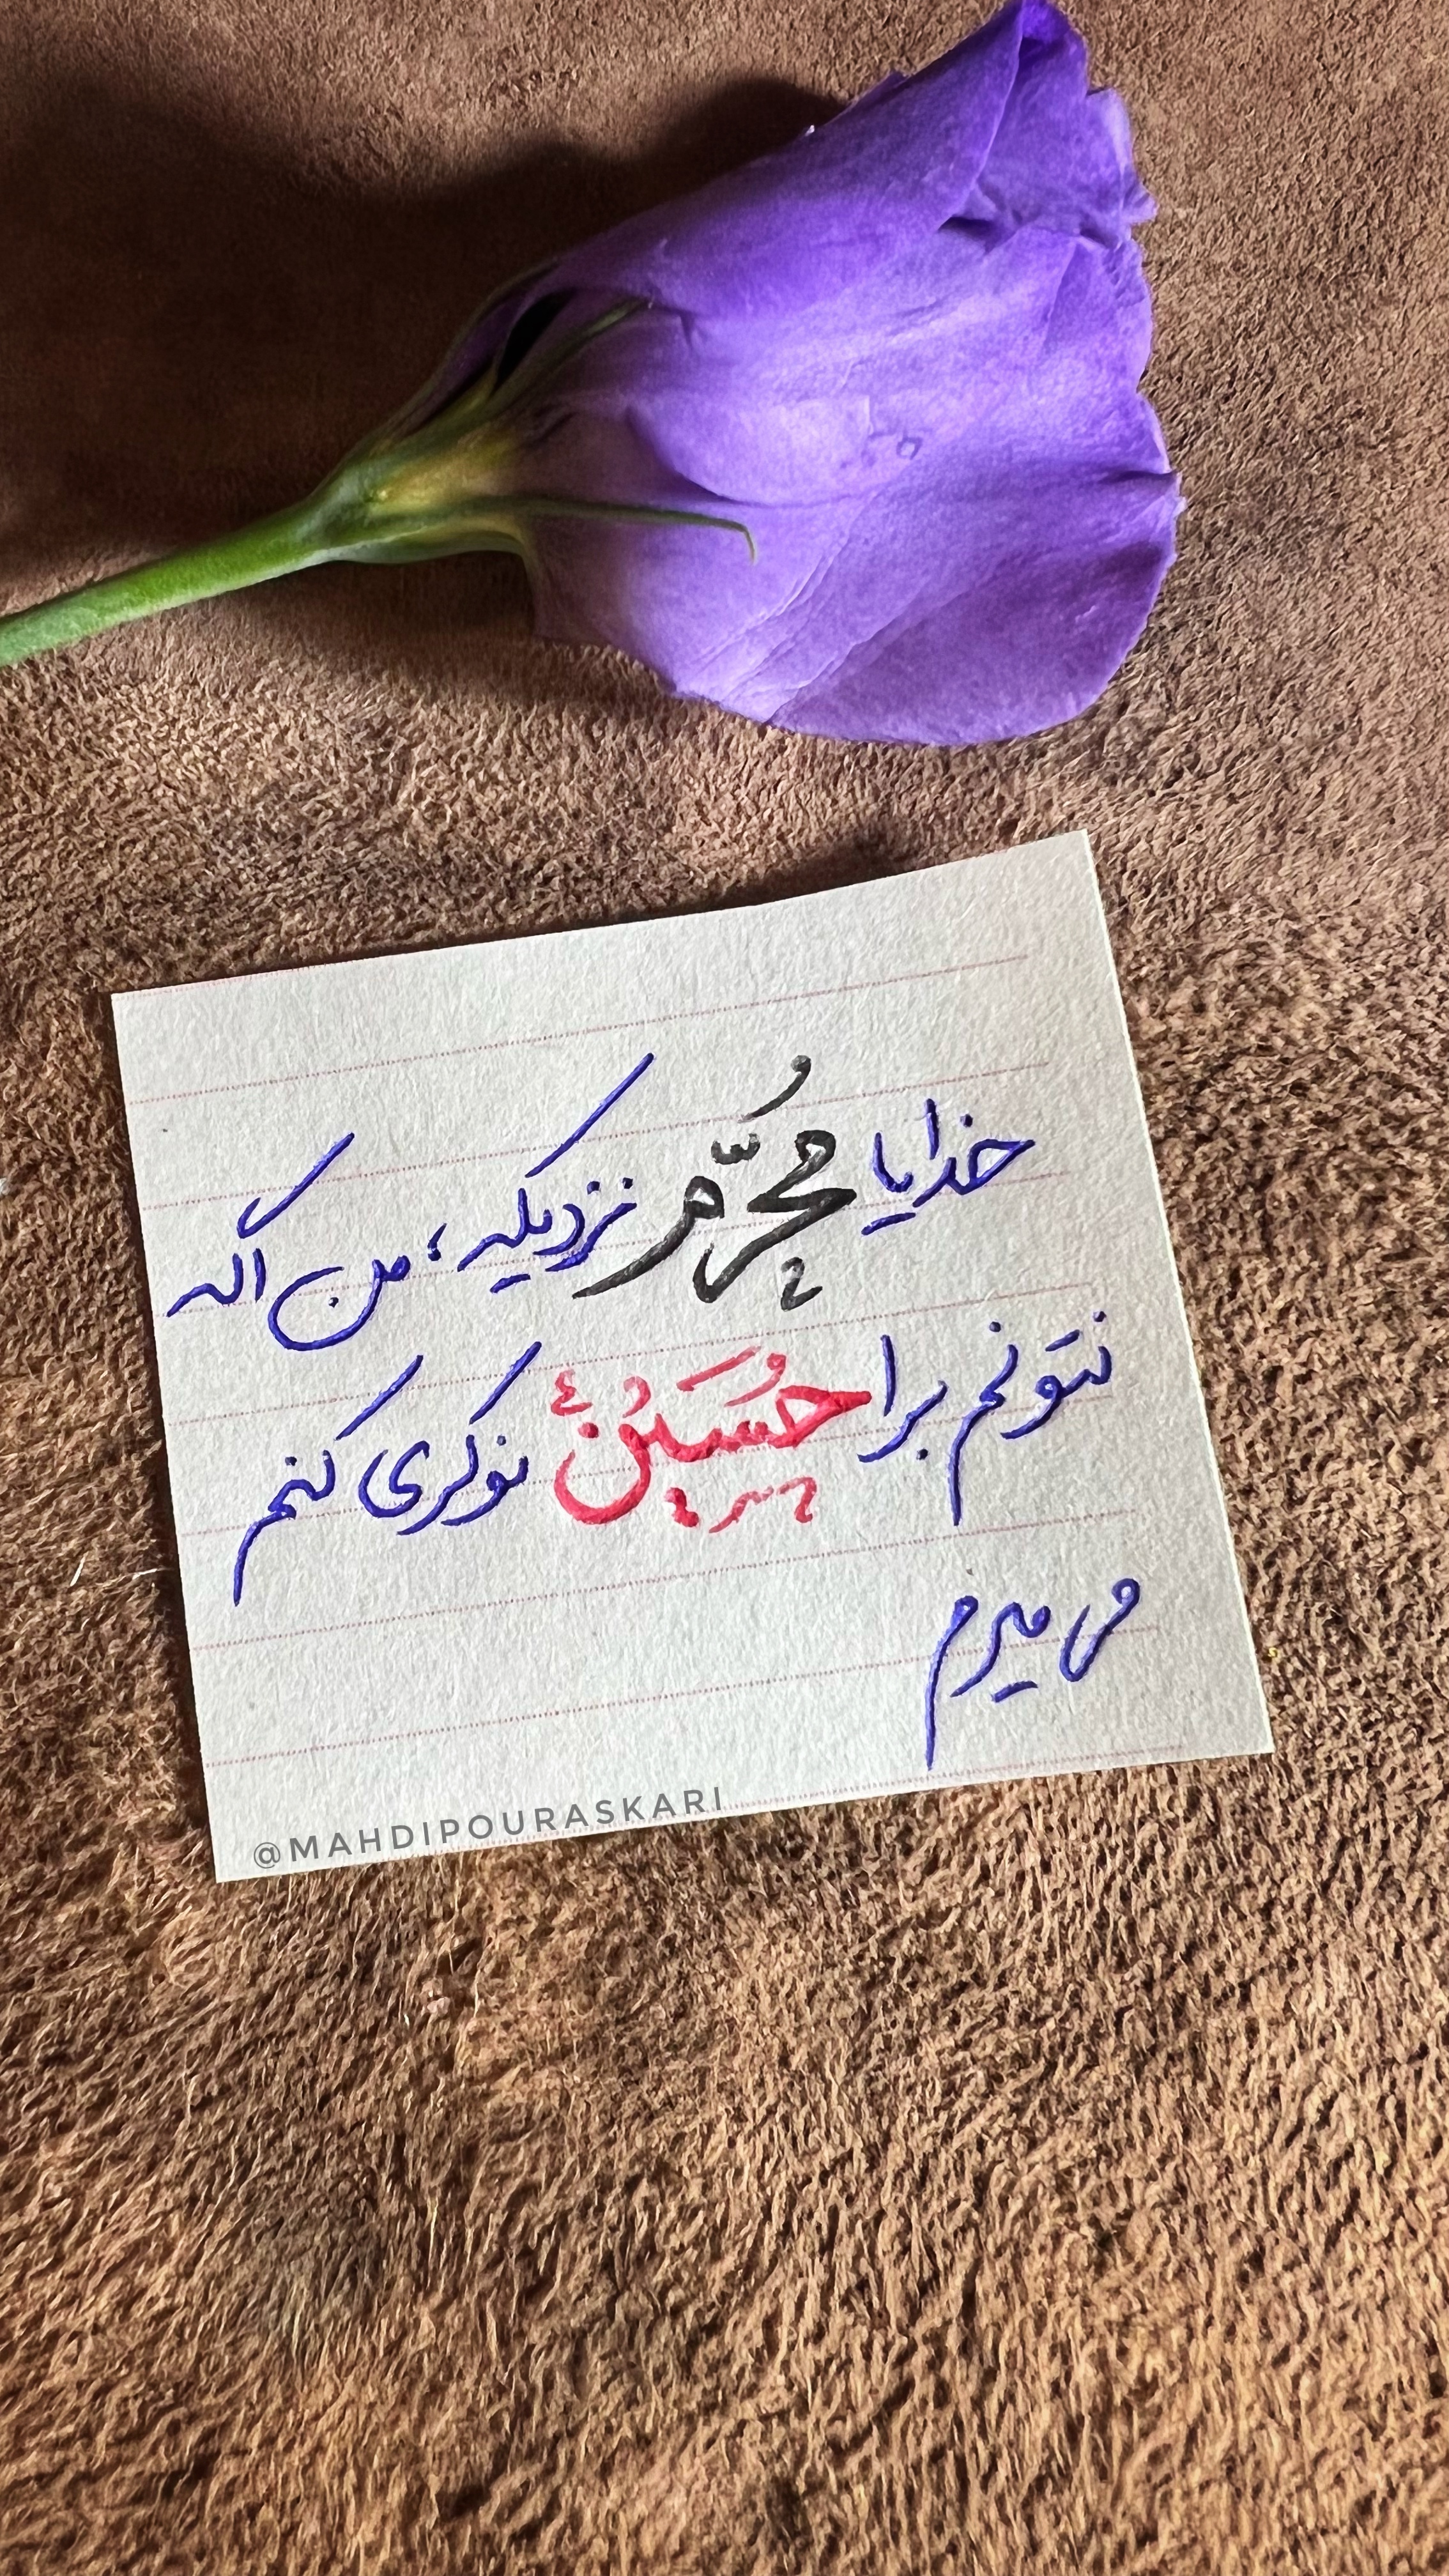 خدایا مُحَرّم نزدیکه، من اگه
نتونم برا حُسَین نوکری کنم
می میرم
@MAHDIPOURASKARI